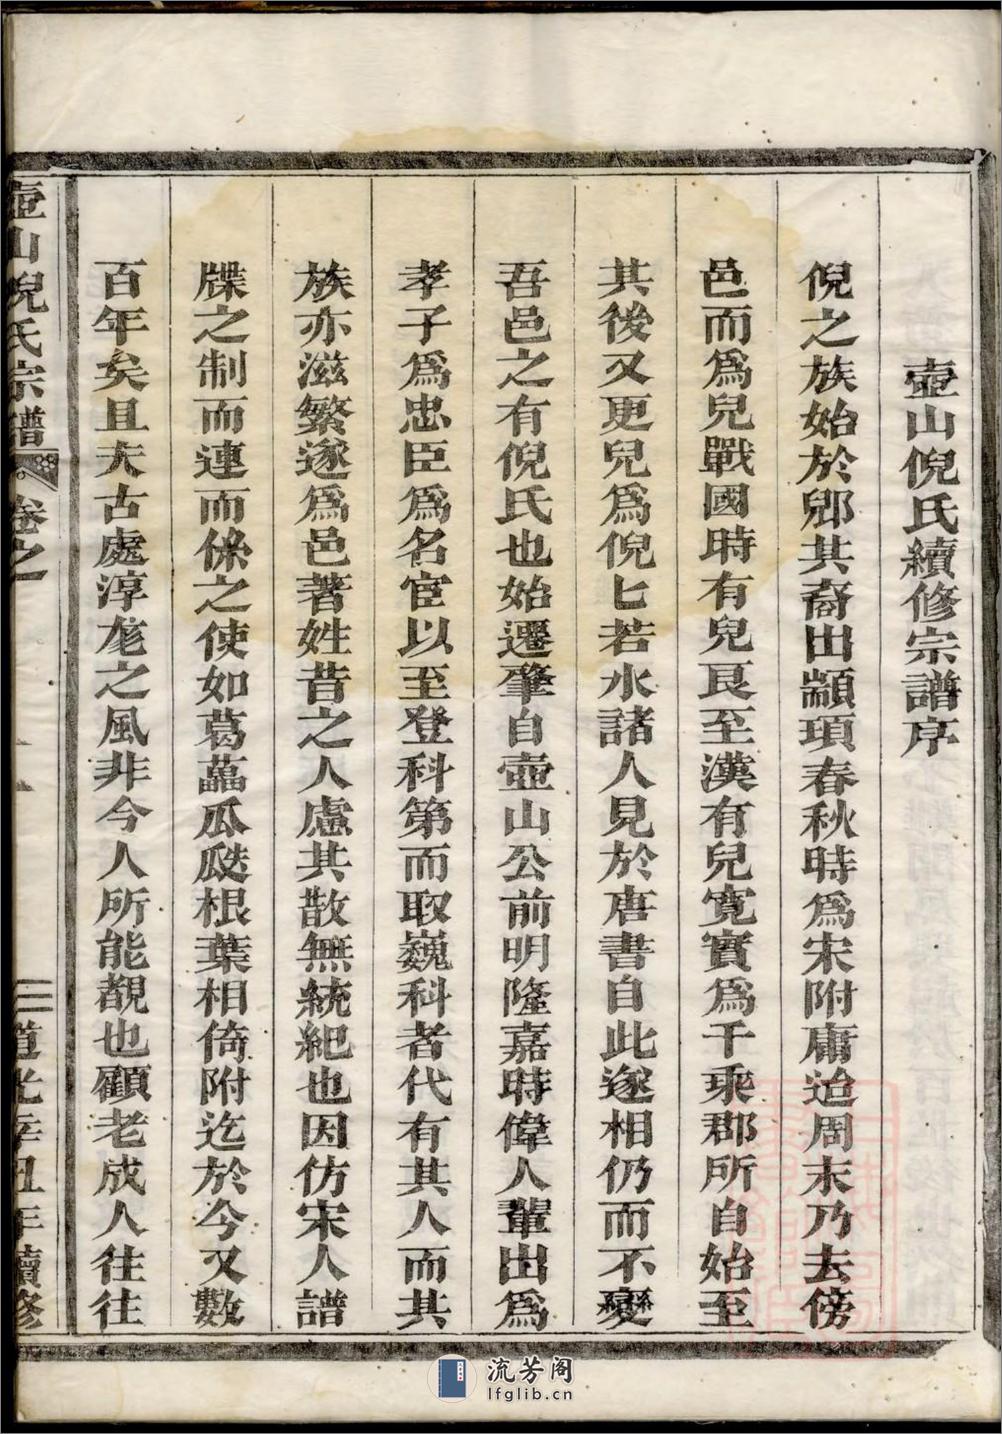 壺山倪氏續修宗譜序
倪之族始於郳其裔出顓頊春秋時爲宋附庸迨周末乃去傍
邑而爲兒戰國時有兒良至漢有兒寬實爲千乘郡所自始至
其後又更兒爲倪匕若水諸人見於唐書自此遂相仍而不變
吾邑之有倪氏也始遷肇自壺山公前明隆嘉時偉人輩出爲
孝子爲忠臣爲名宦以至登科第而取巍科者代有其人而其
族亦滋繁遂爲邑著姓昔之人慮其散無統紀也因仿宋人譜
牒之制而連而係之使如葛藟瓜瓞根葉相倚附迄於今又數
百年矣且夫古處淳厖之風非今人所能覩也顧老成人往往
壺山倪氏宗譜 卷之一 二 道光辛丑年續修
流芳阁
lfglib.cn